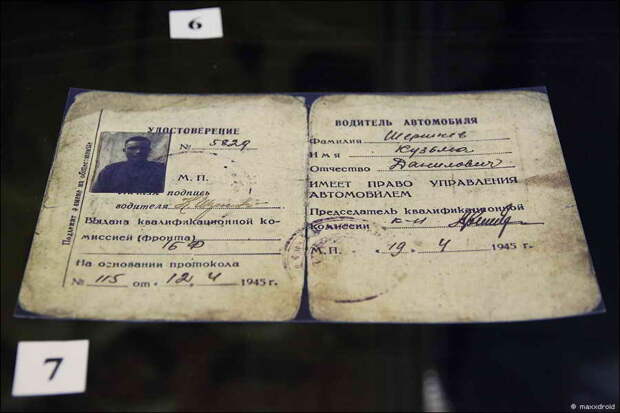 6
УДОСТОВЕРЕНИЕ
№ 5829
М. П.
Личная подпись
водителя
Выдана квалификационной ко-
миссией (фронта)
16 Ф
На основании протокола
№ 115 от 12. 4 1945 г.
ВОДИТЕЛЬ АВТОМОБИЛЯ
Фамилия
Имя Кузьма
Отчество Данилович
ИМЕЕТ ПРАВО УПРАВЛЕНИЯ
АВТОМОБИЛЕМ
Председатель квалификационной
Комиссии
М.П. 19. 4 1945 г.
7
© maxxdroid